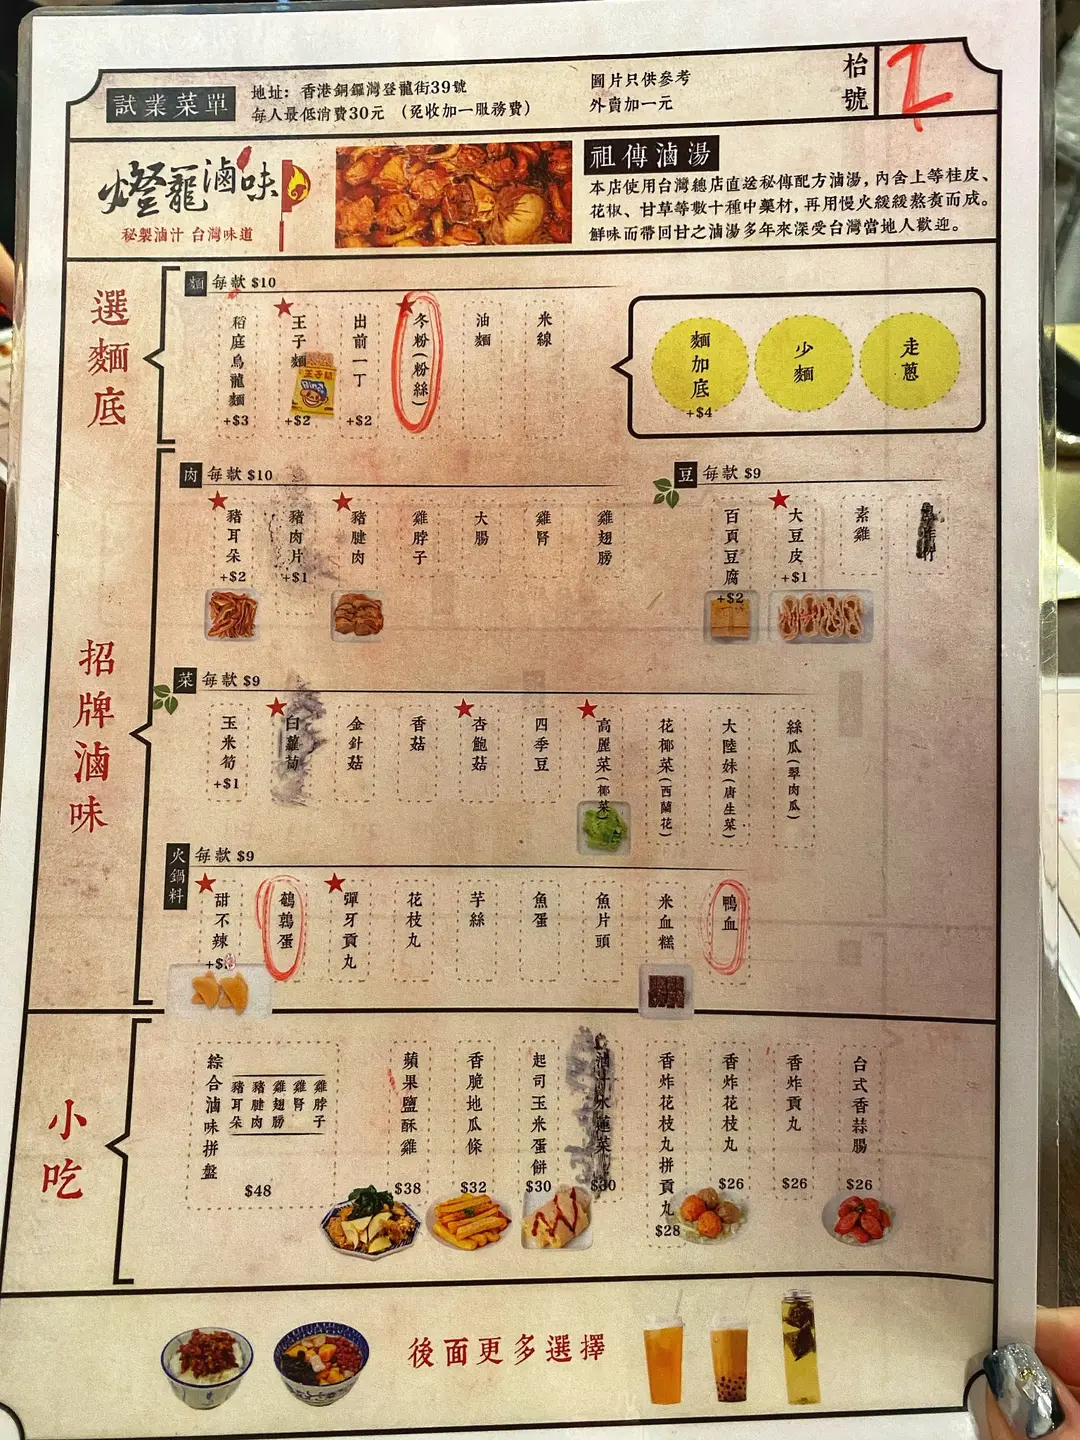 試業菜單
地址：香港銅鑼灣登龍街39號
每人最低消費30元 （免收加一服務費）
圖片只供參考
外賣加一元
枱號
燈籠滷味
秘製滷汁 台灣味道
祖傳滷湯
本店使用台灣總店直送秘傳配方滷湯，內含上等桂皮、
花椒、甘草等數十種中藥材，再用慢火緩緩熬煮而成。
鮮味而帶回甘之滷湯多年來深受台灣當地人歡迎。
選麵底
麵 每款 $10
稻庭烏龍麵 +$3
王子麵 +$2
出前一丁 +$2
冬粉（粉絲）
油麵
米線
麵加底 +$4
少麵
走蔥
招牌滷味
肉 每款 $10
豬耳朵 +$2
豬肉片 +$1
豬腱肉
雞脖子
大腸
雞腎
雞翅膀
豆 每款 $9
百頁豆腐 +$2
大豆皮 +$1
素雞
菜 每款 $9
玉米筍 +$1
白蘿蔔
金針菇
香菇
杏鮑菇
四季豆
高麗菜（椰菜）
花椰菜（西蘭花）
大陸妹（唐生菜）
絲瓜（翠肉瓜）
火鍋料 每款 $9
甜不辣
鵪鶉蛋
彈牙貢丸
花枝丸
芋絲
魚蛋
魚片頭
米血糕
鴨血
小吃
綜合滷味拼盤
豬耳朵
豬腱肉
雞翅膀
雞腎
雞脖子
$48
蘋果鹽酥雞 $38
香脆地瓜條 $32
起司玉米蛋餅 $30
滷汁水蓮菜 $30
香炸花枝丸拼貢丸 $28
香炸花枝丸 $26
香炸貢丸 $26
台式香蒜腸 $26
後面更多選擇